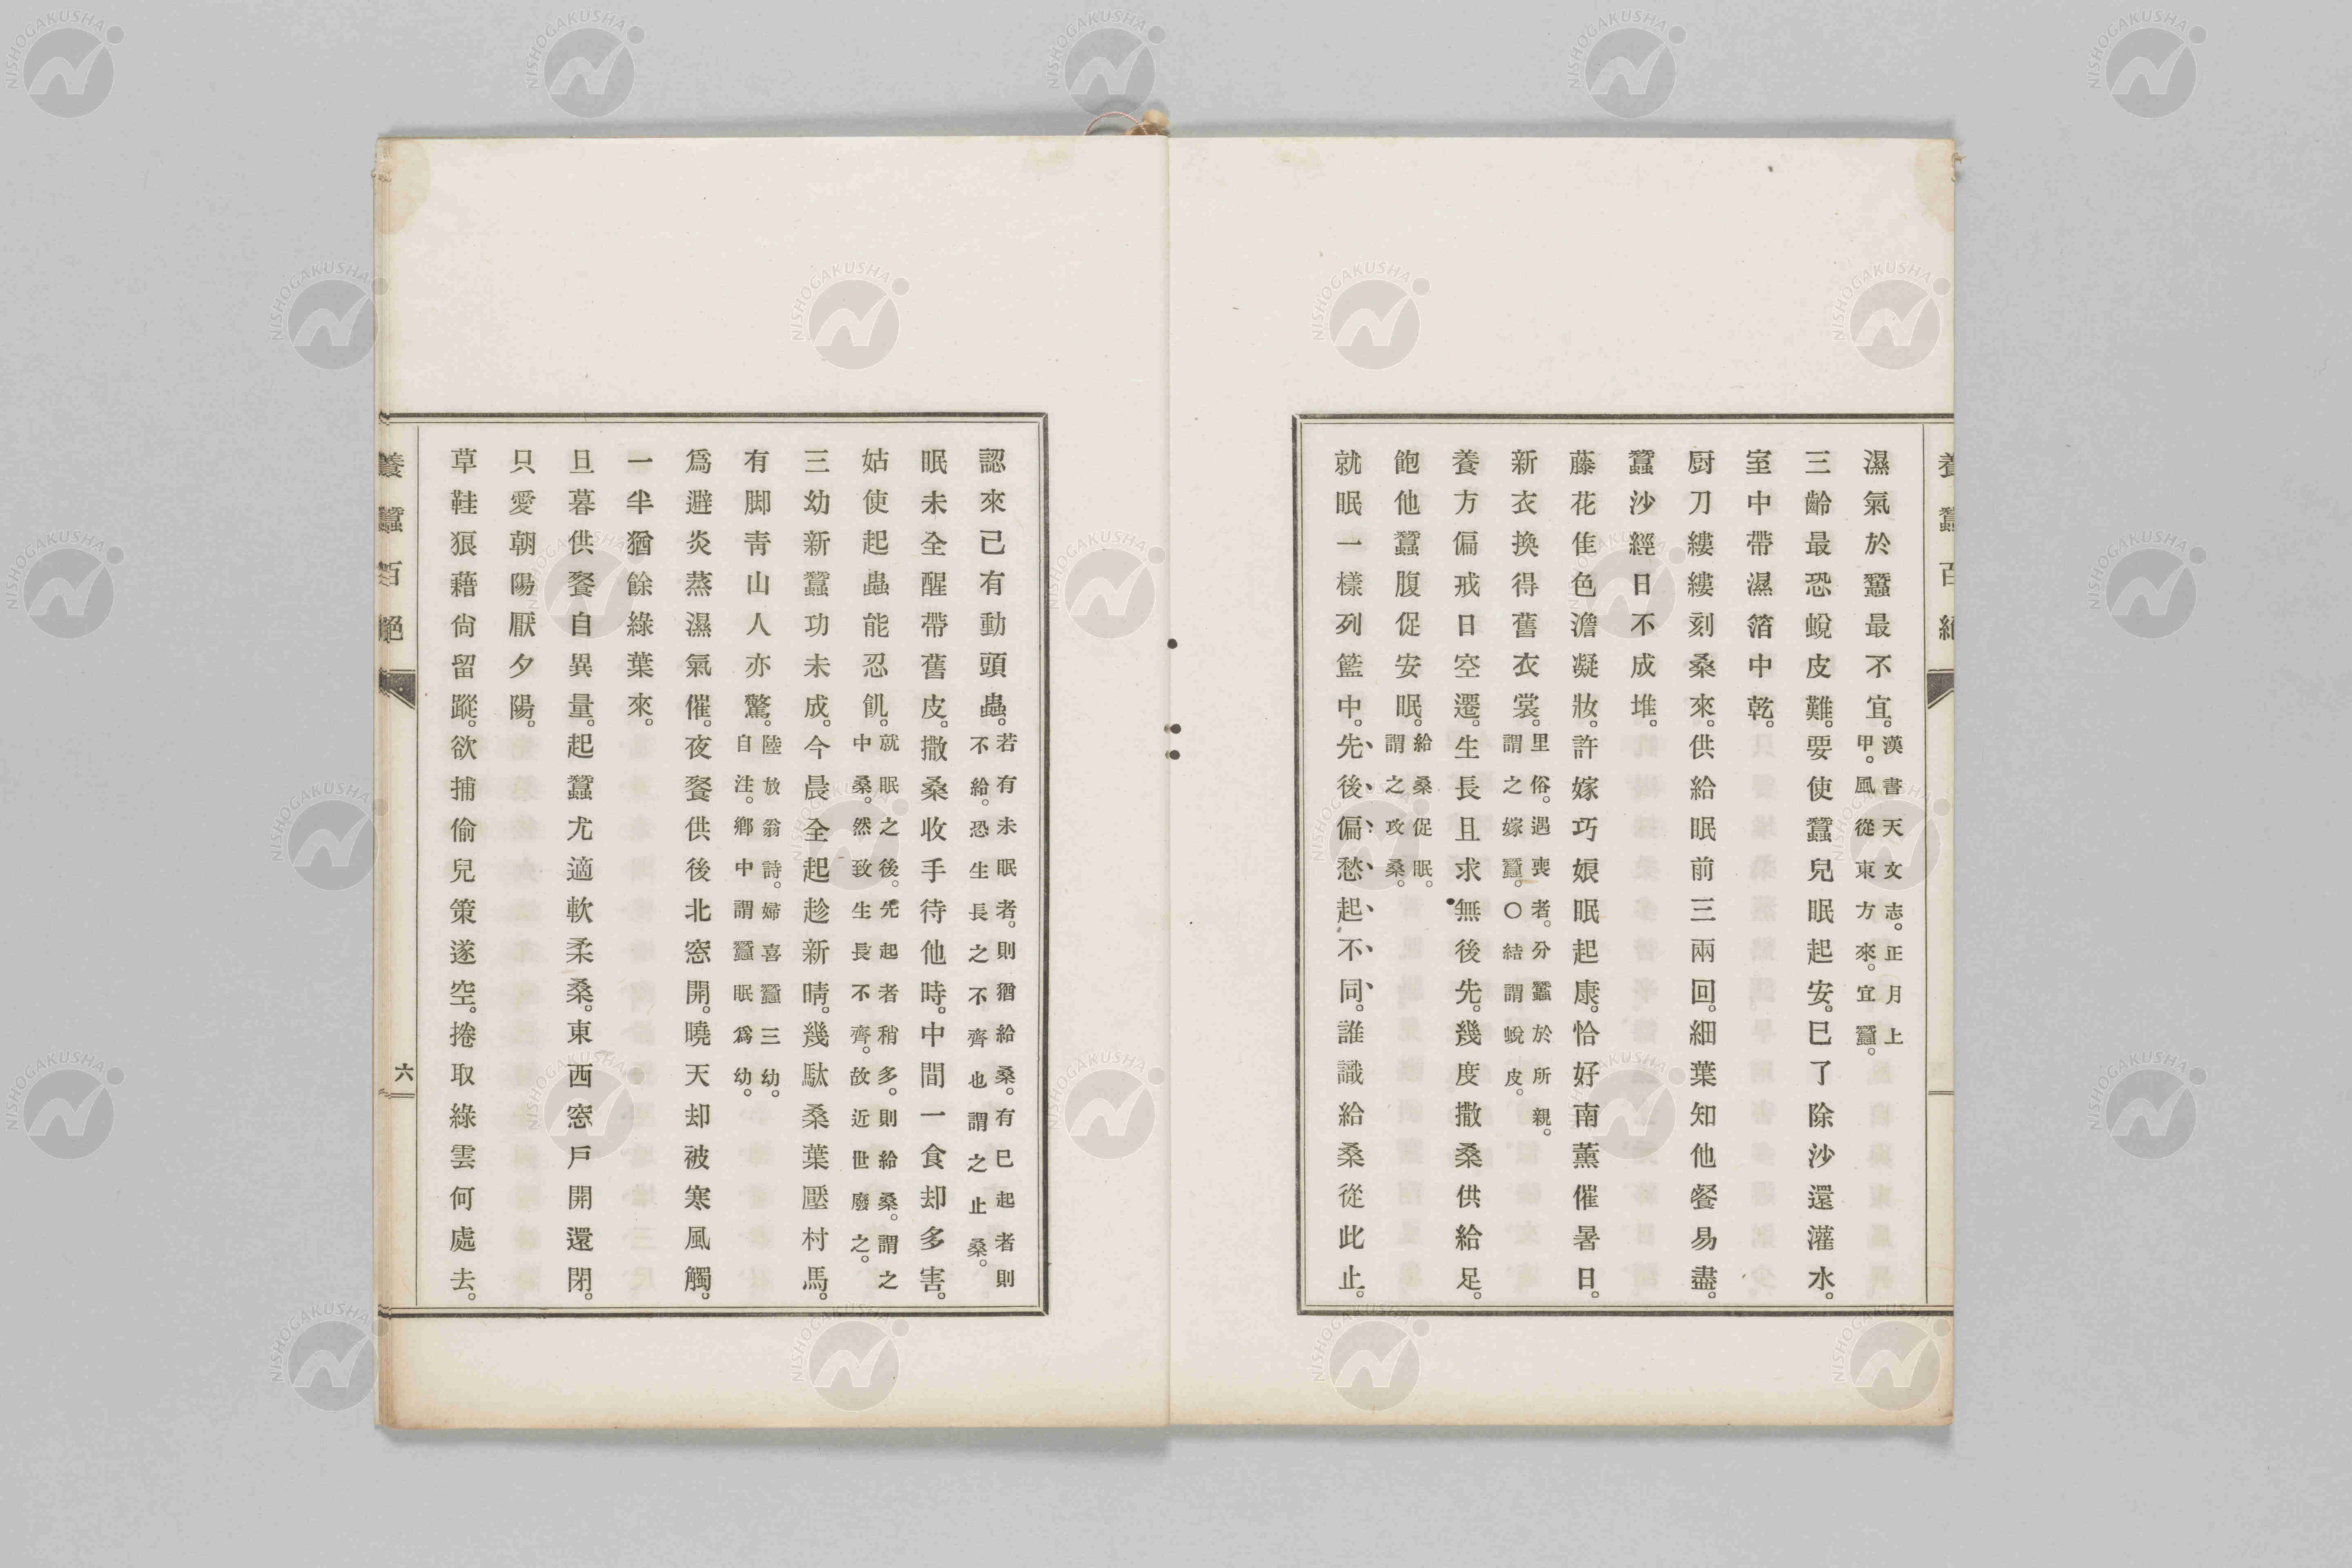 濕氣於蠶最不宜。漢書天文志。正月上甲。風從東方來。宜蠶。
三齡最恐蛻皮難。要使蠶兒眠起安。已了除沙還灌水。
室中帶濕箔中乾。
厨刀縷縷刻桑來。供給眠前三兩回。細葉知他餐易盡。
蠶沙經日不成堆。
藤花佳色澹凝妝。許嫁巧娘眠起康。恰好南薰催暑日。
新衣換得舊衣裳。里俗。遇喪者。分蠶於所親。謂之嫁蠶。○結謂蛻皮。
養方偏戒日空遷。生長且求無後先。幾度撒桑供給足。
飽他蠶腹促安眠。給桑促眠。謂之攻桑。
就眠一樣列籃中。先後偏愁起不同。誰識給桑從此止。
認來已有動頭蟲。若有未眠者。則猶給桑。有已起者則不給。恐生長之不齊也。謂之止桑。
眠未全醒帶舊皮。撒桑收手待他時。中間一食却多害。
姑使起蟲能忍飢。就眠之後。先起者稍多。則給桑。謂之中桑。然致生長不齊。故近世廢之。
三幼新蠶功未成。今晨全起趁新晴。幾駄桑葉壓村馬。
有脚靑山人亦驚。陸放翁詩。婦喜蠶三幼。自注。鄉中謂蠶眠爲幼。
爲避炎蒸濕氣催。夜餐供後北窓開。曉天却被寒風觸。
一半猶餘綠葉來。
旦暮供餐自異量。起蠶尤適軟柔桑。東西窓戶開還閉。
只愛朝陽厭夕陽。
草鞋狼藉尙留蹤。欲捕偷兒策遂空。捲取綠雲何處去。
養蠶百絕
六
NISHOGAKUSHA